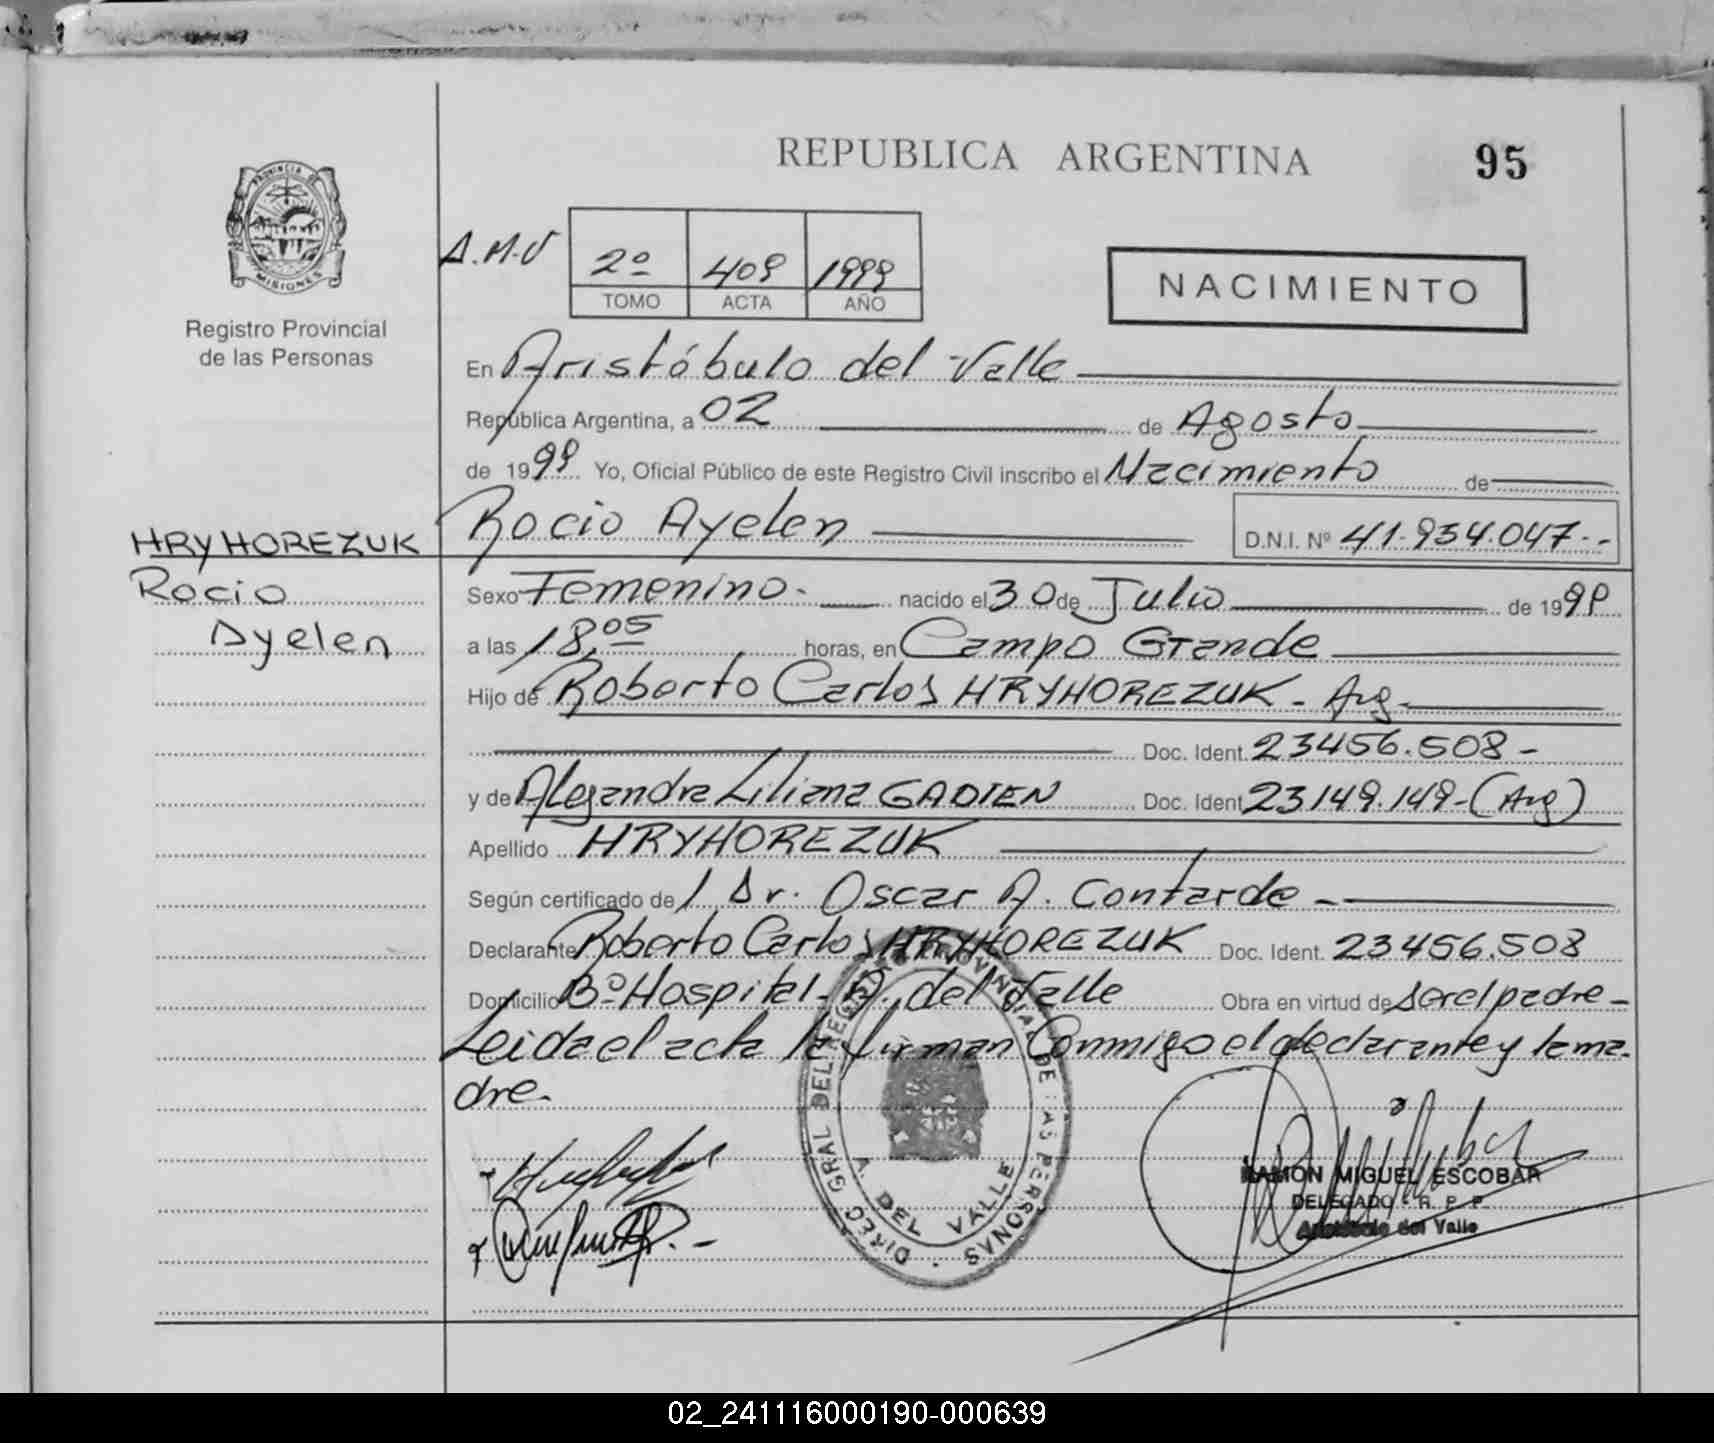 REPUBLICA ARGENTINA 95
PROVINCIA DE MISIONES
Registro Provincial
de las Personas
A.M.V 2º 409 1999
TOMO ACTA AÑO
NACIMIENTO
En Aristóbulo del Valle
República Argentina, a 02 de Agosto
de 1999 Yo, Oficial Público de este Registro Civil inscribo el Nacimiento de
HRYHOREZUK
Rocio
Ayelen
Rocio Ayelen D.N.I. Nº 41.954.047.--
Sexo Femenino.- nacido el 30 de Julio de 1999
a las 18,05 horas, en Campo Grande
Hijo de Roberto Carlos HRYHOREZUK - Arg.
Doc. Ident. 23456.508 -
y de Alejandra Liliana GADIEN Doc. Ident 23149.149-(Arg)
Apellido HRYHOREZUK
Según certificado de / Dr. Oscar A. Contarde -
Declarante Roberto Carlos HRYHOREZUK Doc. Ident. 23456.508
Domicilio Bº Hospital- A. del Valle Obra en virtud de ser el padre -
Leida el acta la firman Conmigo el declarante y la ma-
dre.
DIREC GRAL DEL REGISTRO PROVINCIAL DE LAS PERSONAS
A. DEL VALLE
RAMON MIGUEL ESCOBAR
DELEGADO R. P. P.
Aristóbulo del Valle
02_241116000190-000639